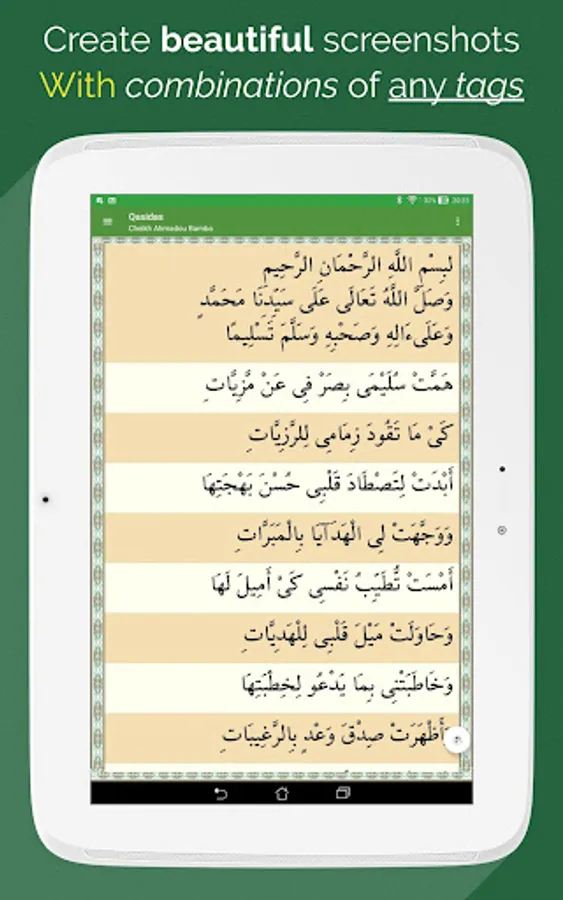 Create beautiful screenshots
With combinations of any tags
Qasidas
Cheikh Ahmadou Bamba
لبِسْمِ اللَّهِ الرَّحْمَانِ الرَّحِيمِ
وَصَلَّ اللَّهُ تَعَالَى عَلَى سَيِّدِنَا مَحَمَّدٍ
وَعَلَىءَالِهِ وَصَحْبِهِ وَسَلَّمَ تَسْلِيمًا
هَمَّتْ سُلَيْمَى بِصَرْ فِى عَنْ مَّزِيَّاتِ
كَىْ مَا تَقُودَ زِمَامِى لِلرَّزِيَّاتِ
أَبْدَتْ لِتَصْطَادَ قَلْبِى حُسْنَ بَهْجَتِهَا
وَوَجَّهَتْ لِى الْهَدَآيَا بِالْمَبَرَّاتِ
أَمْسَتْ تُّطَيِّبُ نَفْسِى كَىْ أَمِيلَ لَهَا
وَحَاوَلَتْ مَيْلَ قَلْبِى لِلْهَدِيَّاتِ
وَخَاطَبَتْنِى بِمَا يَدْعُو لِخِطْبَتِهَا
وَأَظْهَرَتْ صِدْقَ وَعْدٍ بِالرَّغِيبَاتِ